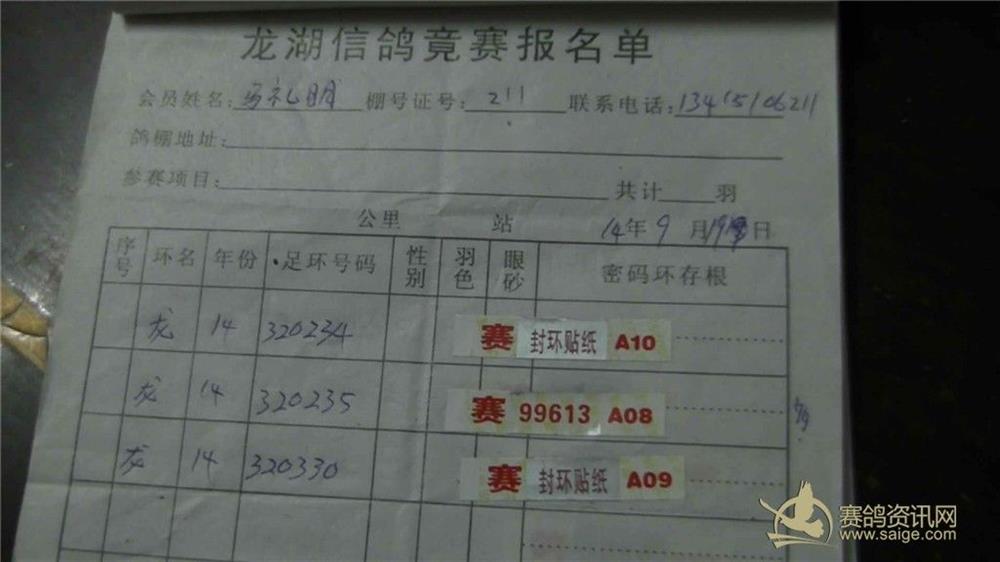 龙湖信鸽竟赛报名单
会员姓名: 马礼明 棚号证号: 211 联系电话: 13415106211
鸽棚地址:
参赛项目: 共计 羽
公里 站 14年9月19日
序号 环名 年份 足环号码 性别 羽色 眼砂 密码环存根
龙 14 320234 赛 封环贴纸 A10
龙 14 320235 赛 99613 A08
龙 14 320330 赛 封环贴纸 A09
赛鸽资讯网
www.saige.com